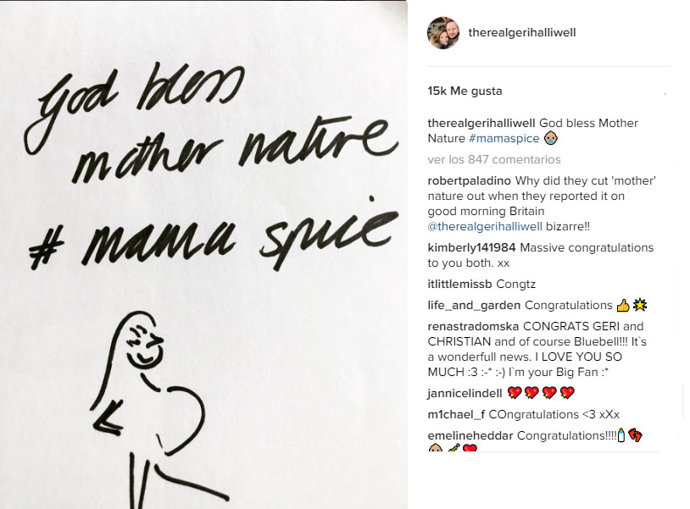 God bless
mother nature
# mama spice
therealgerihalliwell
15k Me gusta
therealgerihalliwell God bless Mother
Nature #mamaspice 👶
ver los 847 comentarios
robertpaladino Why did they cut 'mother'
nature out when they reported it on
good morning Britain
@therealgerihalliwell bizarre!!
kimberly141984 Massive congratulations
to you both. xx
itlittlemissb Congtz
life_and_garden Congratulations 👍🌟
renastradomska CONGRATS GERI and
CHRISTIAN and of course Bluebell!!! It`s
a wonderfull news. I LOVE YOU SO
MUCH :3 :-* :-) I`m your Big Fan :*
jannicelindell 💖💖💖💖
m1chael_f COngratulations <3 xXx
emelineheddar Congratulations!!!!🍼👣